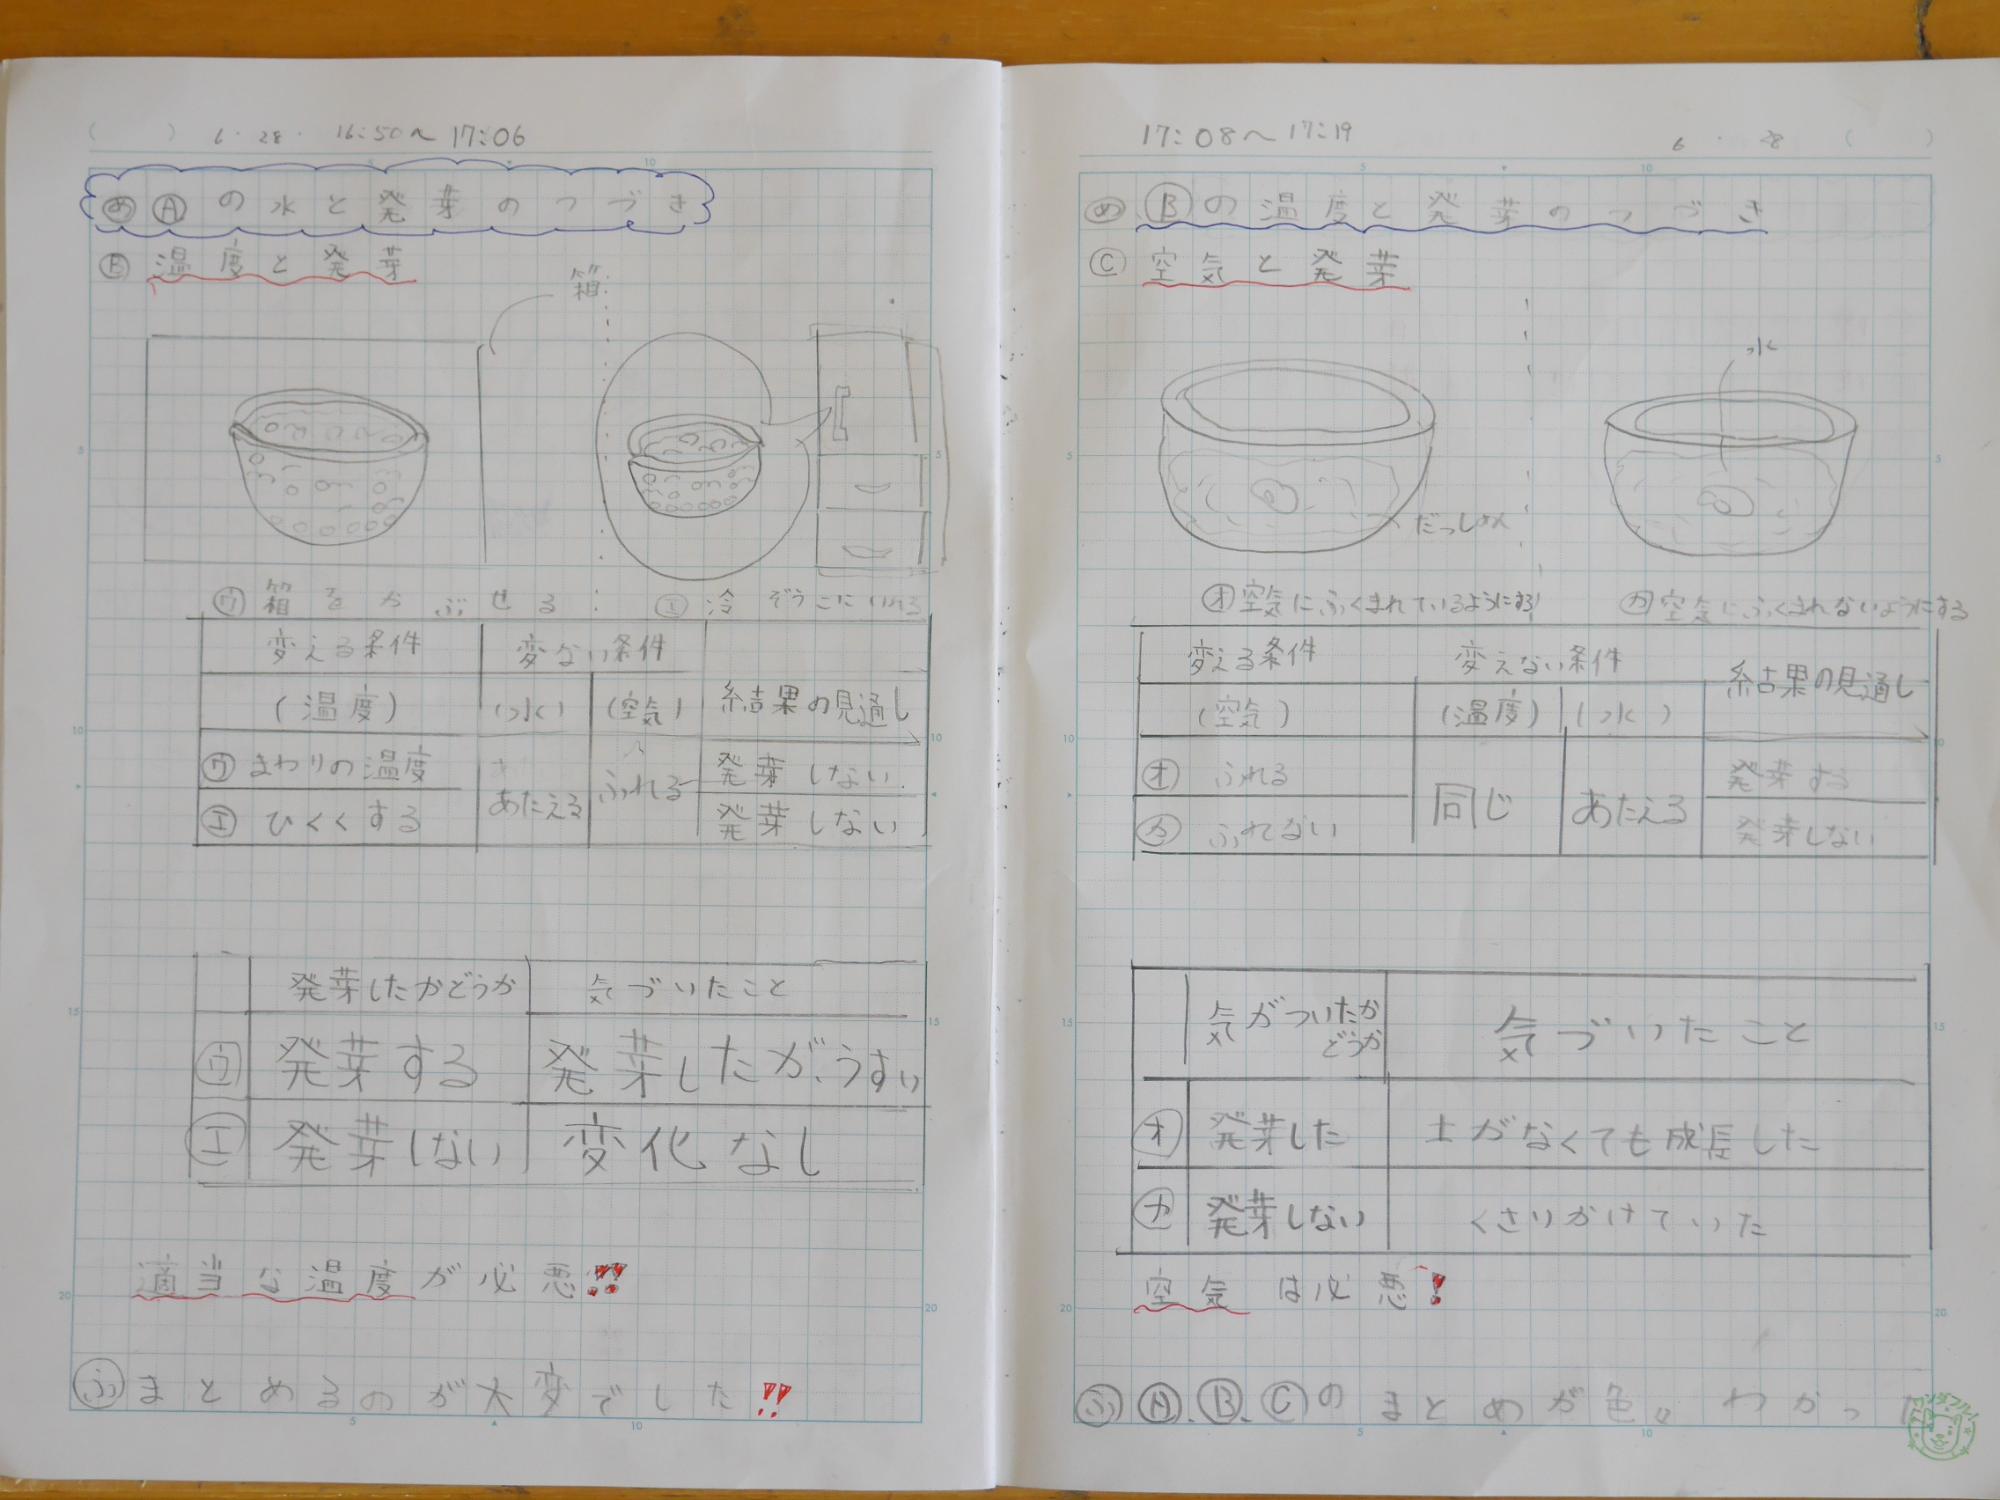 6・28・ 16:50～17:06
め Ⓐの水と発芽のつづき
Ⓑ 温度と発芽
箱
㋒ 箱をかぶせる
㋓ 冷ぞうこに
変える条件 変ない条件
(温度) (水) (空気) 結果の見通し
㋒ まわりの温度 あたえる ふれる 発芽しない
㋓ ひくくする 発芽しない
発芽したかどうか 気づいたこと
㋒ 発芽する 発芽したが、うすい
㋓ 発芽しない 変化なし
適当な温度が必悪!!
ふ まとめるのが大変でした!!
17:08～17:19 6・28
め Ⓑの温度と発芽のつづき
Ⓒ 空気と発芽
水
だっしめん
㋔ 空気にふくまれているようにする
㋕ 空気にふくまれないようにする
変える条件 変えない条件 結果の見通し
(空気) (温度) (水)
㋔ ふれる 同じ あたえる 発芽する
㋕ ふれない 発芽しない
気がついたか
どうか 気づいたこと
㋔ 発芽した 土がなくても成長した
㋕ 発芽しない くさりかけていた
空気は必悪!
ふ Ⓐ、Ⓑ、Ⓒのまとめが色々わかった